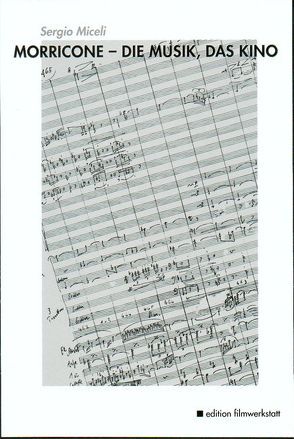 Sergio Miceli
MORRICONE – DIE MUSIK, DAS KINO
■ edition filmwerkstatt